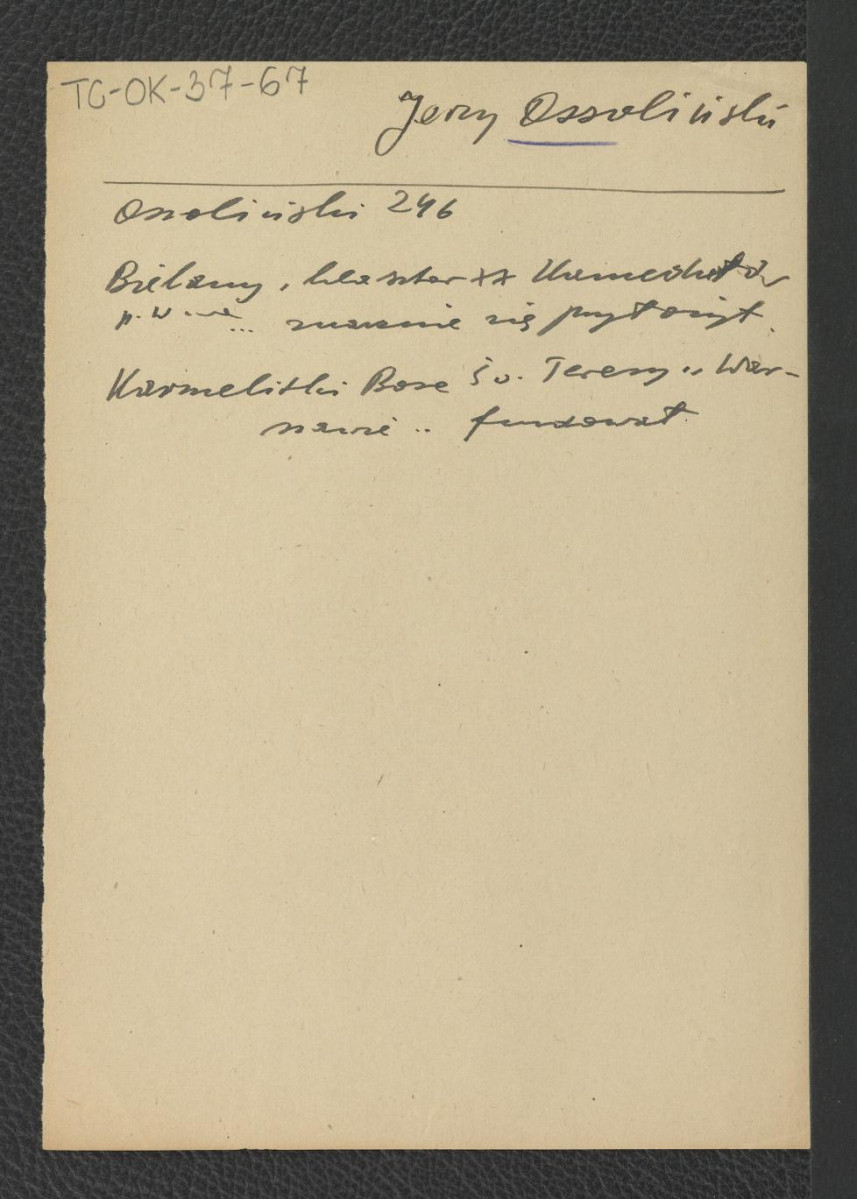 TG-OK-37-67
Jerzy Ossoliński
Ossoliński 246
Bielany, klasztor XX Kamedułów
p. W-wą... znacznie się przyłożył.
Karmelitki Bose Św. Teresy w War-
szawie .. fundował.